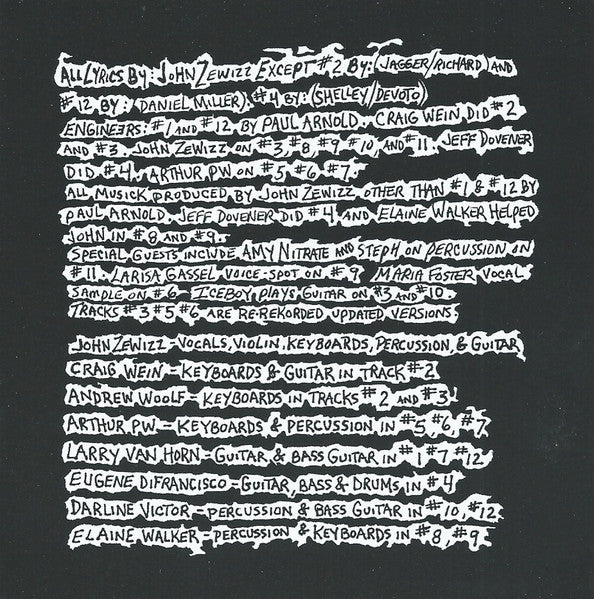 ALL LYRICS BY: JOHN ZEWIZZ EXCEPT #2 BY: (JAGGER/RICHARD) AND
#12 BY: DANIEL MILLER). #4 BY: (SHELLEY/DEVOTO)
ENGINEERS: #1 AND #12 BY PAUL ARNOLD. CRAIG WEIN DID #2
AND #3. JOHN ZEWIZZ ON #3, #8, #9, #10, AND #11. JEFF DOVENER
DID #4. ARTHUR PW ON #5 #6 #7.
ALL MUSICK PRODUCED BY JOHN ZEWIZZ OTHER THAN #1 & #12 BY
PAUL ARNOLD. JEFF DOVENER DID #4 AND ELAINE WALKER HELPED
JOHN IN #8 AND #9.
SPECIAL GUESTS INCLUDE AMY NITRATE AND STEPH ON PERCUSSION ON
#11. LARISA GASSEL VOICE-SPOT ON #9 MARIA FOSTER VOCAL
SAMPLE ON #6 - ICEBOY PLAYS GUITAR ON #3 AND #10.
TRACKS #3 #5 #6 ARE RE-REKORDED UPDATED VERSIONS.
JOHN ZEWIZZ - VOCALS, VIOLIN, KEYBOARDS, PERCUSSION, & GUITAR
CRAIG WEIN - KEYBOARDS & GUITAR IN TRACK #2
ANDREW WOOLF - KEYBOARDS IN TRACKS #2 AND #3!
ARTHUR PW - KEYBOARDS & PERCUSSION IN #5, #6, #7
LARRY VAN HORN - GUITAR & BASS GUITAR IN #1 #7 #12
EUGENE DIFRANCISCO - GUITAR, BASS & DRUMS IN #4
DARLINE VICTOR - PERCUSSION & BASS GUITAR IN #10, #12
ELAINE WALKER - PERCUSSION & KEYBOARDS IN #8, #9.